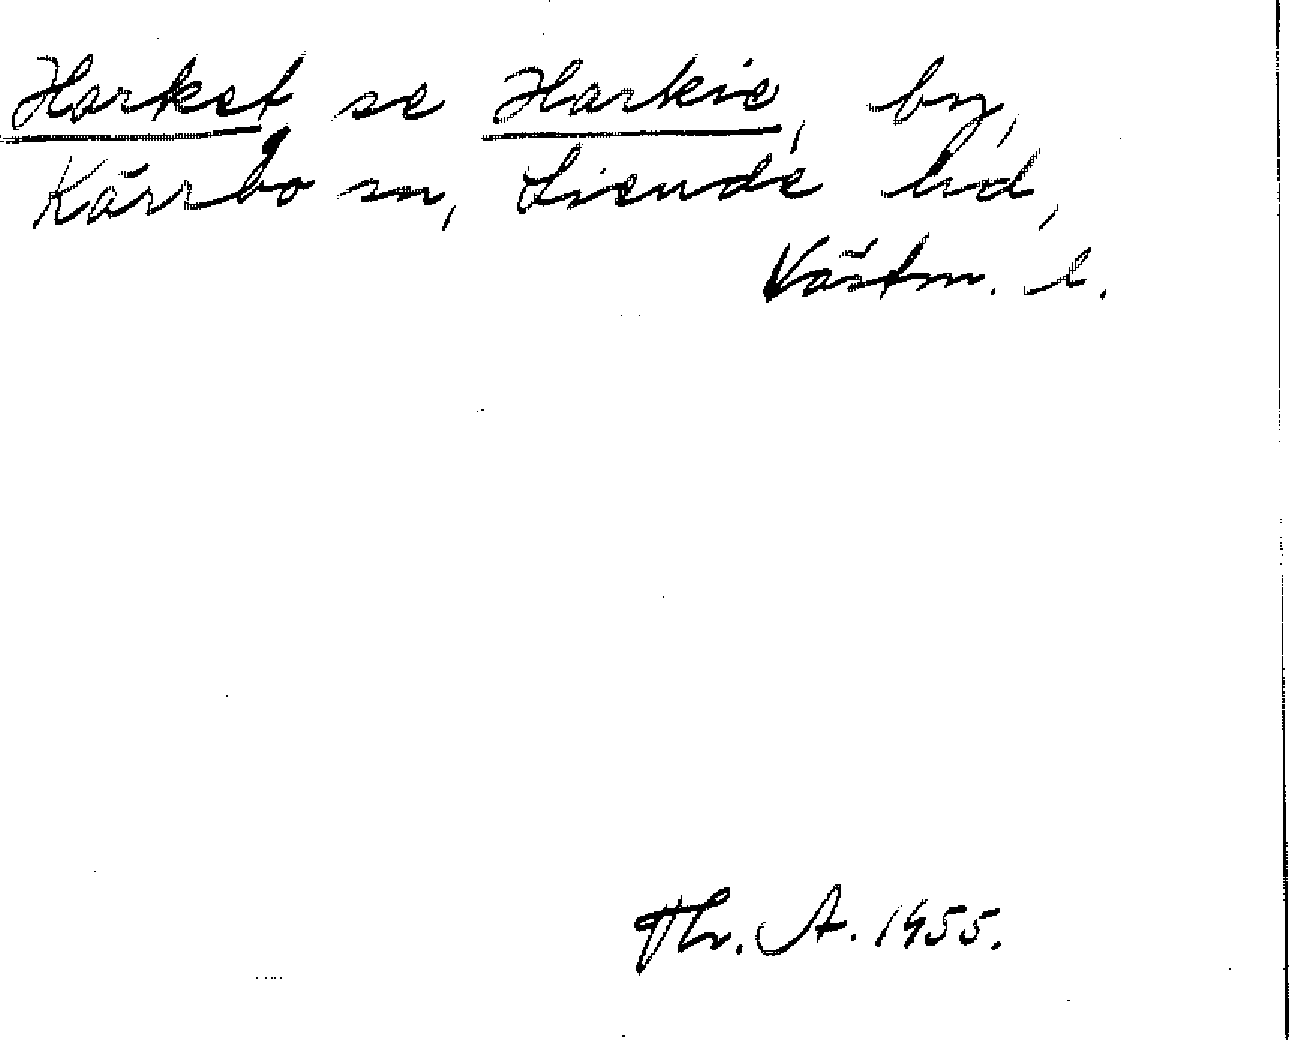 Harket se Harkie, by,
Kärrbo sn, Siende hd,
Västm. l.
Thr. A. 1955.